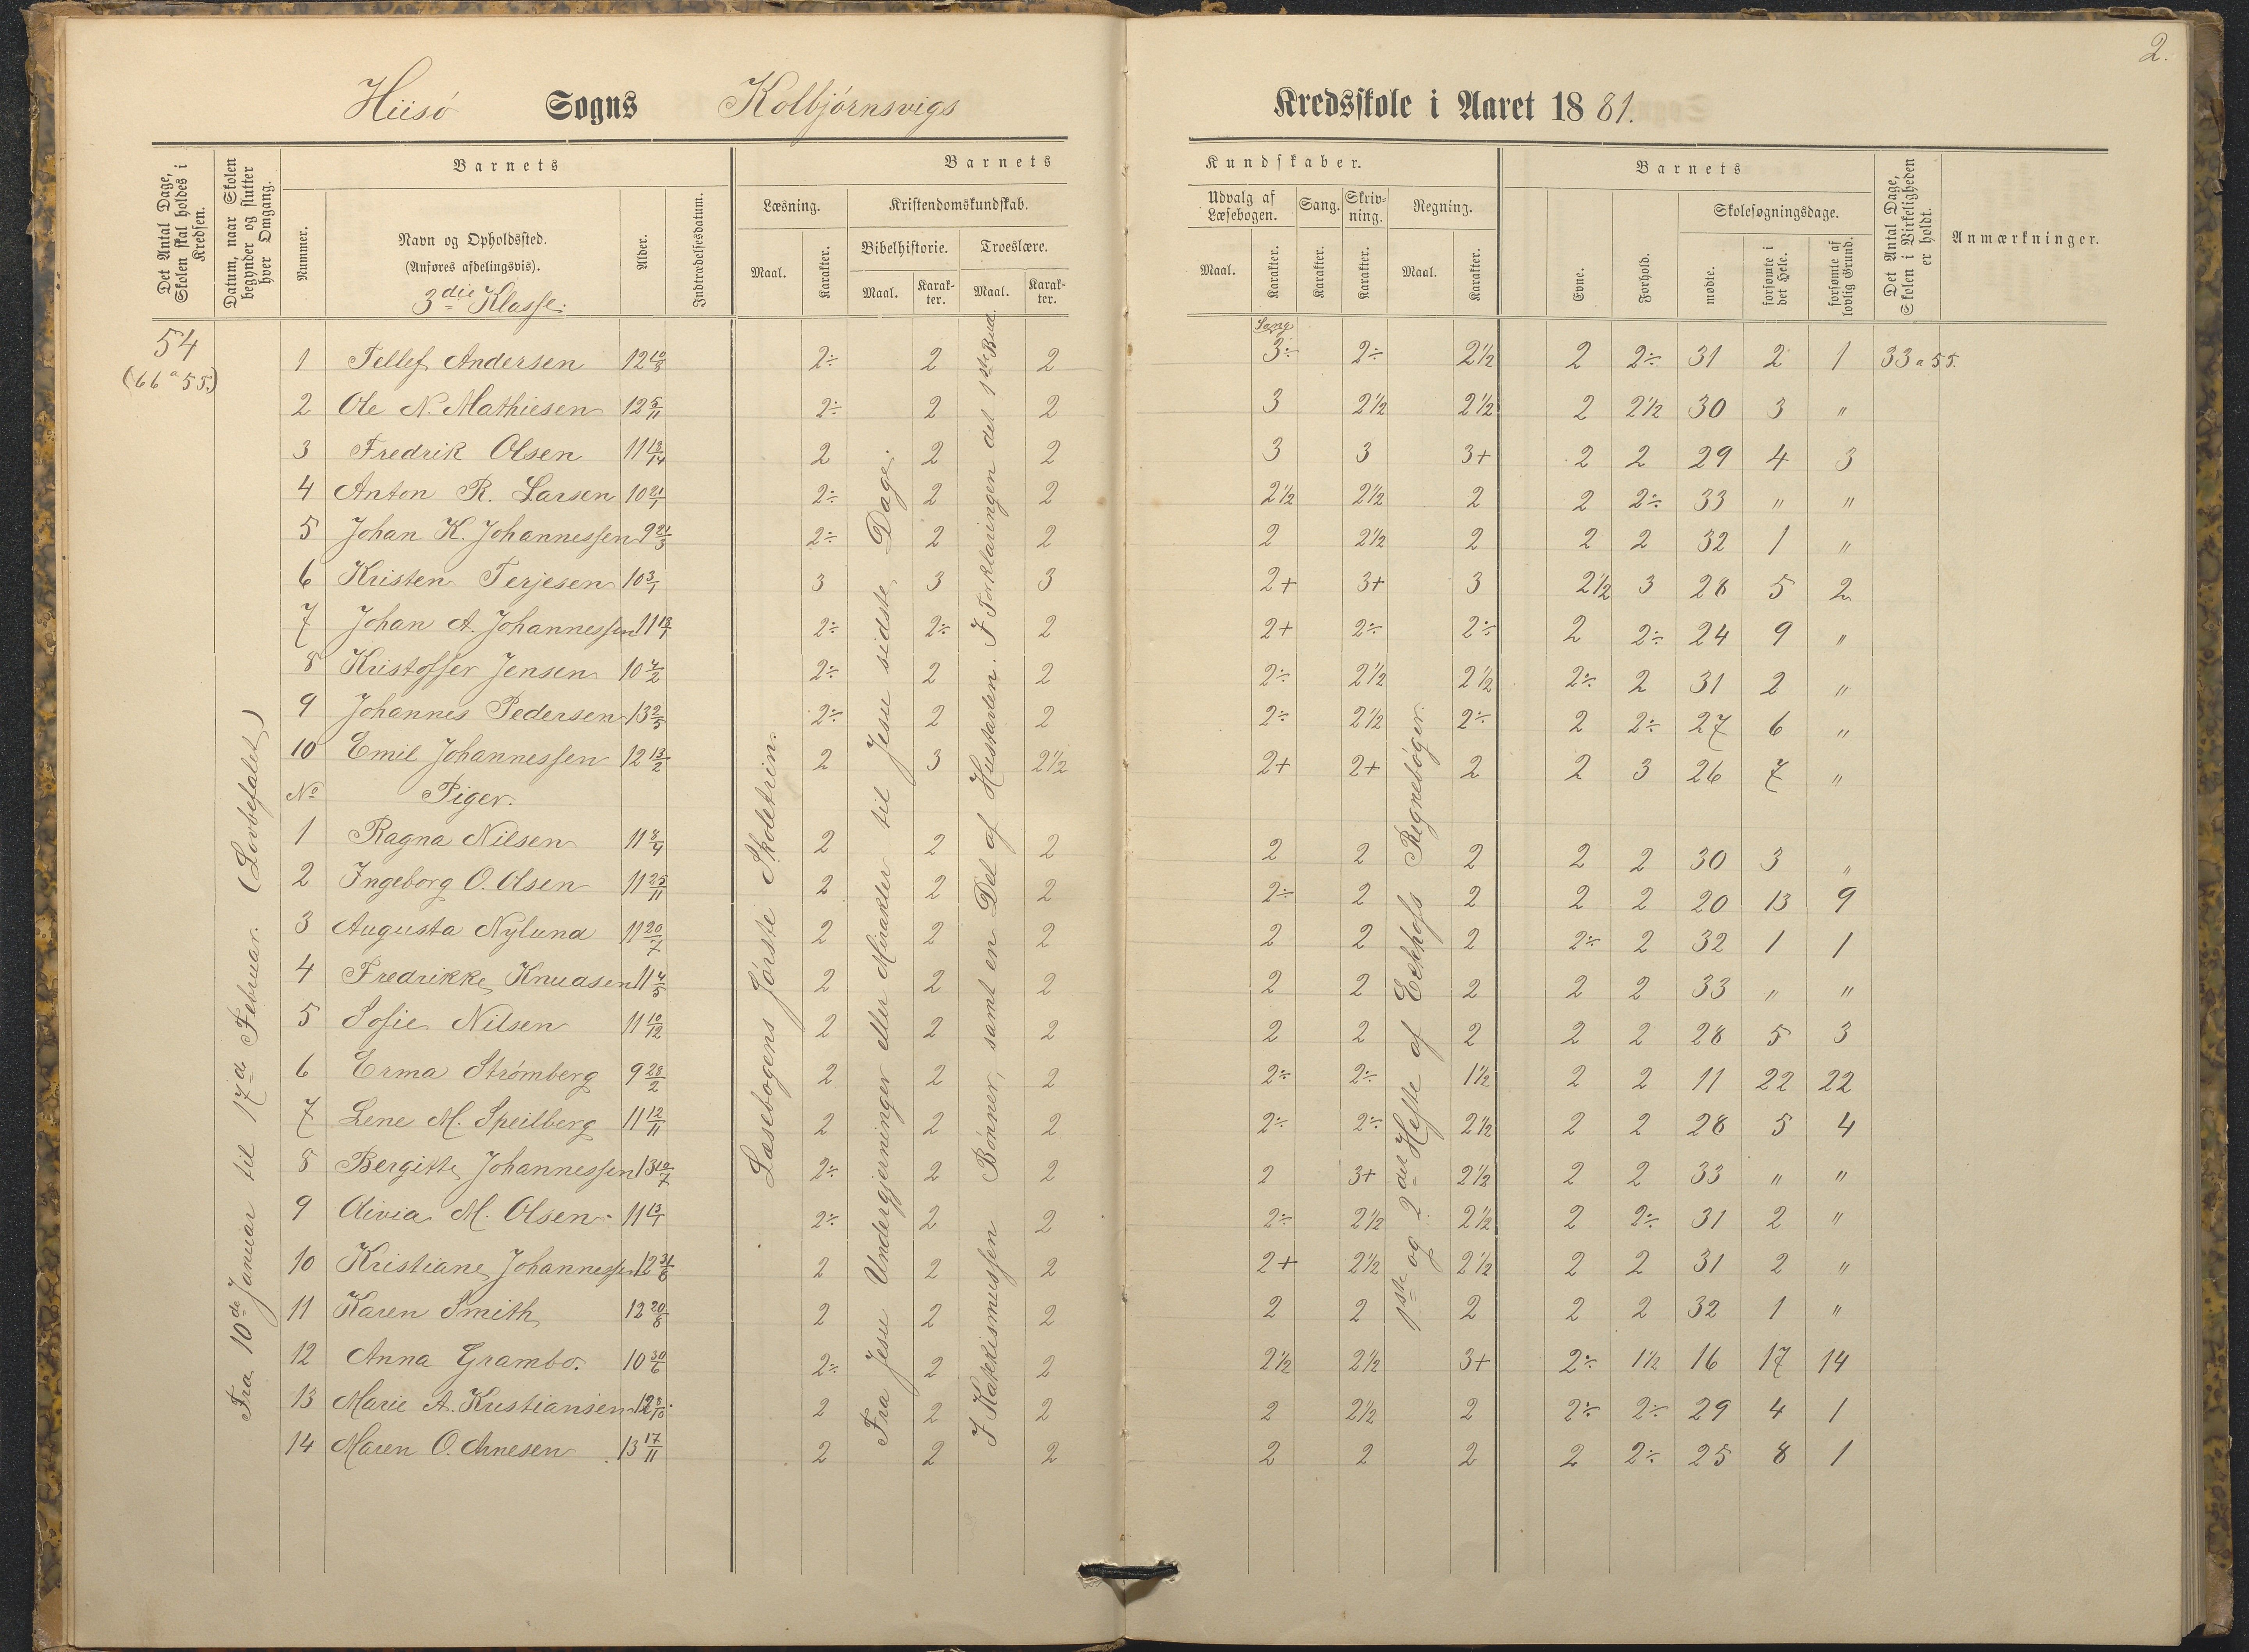 2.
Hiisö Sogns Kolbjörnsvigs Kredsskole i Aaret 1881.
Det Antal Dage, Skolen skal holdes i Kredsen.
Datum, naar Skolen begynder og slutter hver Omgang.
Barnets
Nummer.
Navn og Opholdssted.
(Anføres afdelingsvis).
3die Klasse.
Alder.
Indtrædelsesdatum.
Barnets Kundskaber.
Læsning.
Maal. Karakter.
Kristendomskundskab.
Bibelhistorie. Troeslære.
Maal. Karakter. Maal. Karakter.
Udvalg af Læsebogen.
Maal. Karakter.
Sang.
Karakter.
Skrivning.
Karakter.
Regning.
Maal. Karakter.
Barnets
Evne. Forhold.
Skolesøgningsdage.
mødte. forsømte i det Hele. forsømte af lovlig Grund.
Det Antal Dage, Skolen i Virkeligheden er holdt.
Anmærkninger.
54
(66 a 55.)
Fra 10de Januar til 17de Februar. (Lovbefalet)
Læsebogens første Skoletrin.
Fra Jesu Undergjerninger eller Mirakler til Jesu sidste Dage.
I Katekismussen Bønner, samt en Del af Hustavlen. I Forklaringen del 1ste Bud.
Sang
1ste og 2det Hefte af Eckhofs Regnebøger.
1 Tellef Andersen 12 10/8 2÷ 2 2 3÷ 2÷ 2½ 2 2÷ 31 2 1 33 a 55.
2 Ole N. Mathiesen 12 5/11 2÷ 2 2 3 2½ 2½ 2 2½ 30 3 "
3 Fredrik Olsen 11 2 2 2 3 3 3+ 2 2 29 4 3
4 Anton R. Larsen 10 21/1 2÷ 2 2 2½ 2½ 2 2 2÷ 33 " "
5 Johan K. Johannessen 9 21/3 2÷ 2 2 2 2½ 2 2 2 32 1 "
6 Kristen Terjesen 10 3/1 3 3 3 2+ 3+ 3 2½ 3 28 5 2
7 Johan A. Johannessen 11 2÷ 2÷ 2 2+ 2÷ 2÷ 2 2÷ 24 9 "
8 Kristoffer Jensen 10 4/2 2÷ 2 2 2÷ 2½ 2½ 2÷ 2 31 2 "
9 Johannes Pedersen 13 2/5 2÷ 2 2 2÷ 2½ 2÷ 2 2÷ 27 6 "
10 Emil Johannessen 12 13/2 2 3 2½ 2+ 2+ 2 2 3 26 7 "
No Piger.
1 Ragna Nilsen 11 8/4 2 2 2 2 2 2 2 2 30 3 "
2 Ingeborg O. Olsen 11 25/11 2 2 2 2÷ 2 2 2 2 20 13 9
3 Augusta Nylund 11 20/7 2 2 2 2 2 2 2÷ 2 32 1 1
4 Fredrikke Knudsen 11 4/5 2 2 2 2 2 2 2 2 33 " "
5 Sofie Nilsen 11 10/12 2 2 2 2 2 2 2 2 28 5 3
6 Erma Strömberg 9 28/2 2 2 2 2÷ 2÷ 1½ 2 2 11 22 22
7 Lene M. Speilberg 11 12/11 2 2 2 2÷ 2÷ 2½ 2 2 28 5 4
8 Bergitte Johannessen 13 2÷ 2 2 2 3+ 2½ 2 2 33 " "
9 Olivia M. Olsen 11 13/1 2÷ 2 2 2÷ 2½ 2½ 2 2÷ 31 2 "
10 Kristiane Johannessen 12 31/8 2 2 2 2+ 2½ 2½ 2 2 31 2 "
11 Karen Smith 12 20/8 2 2 2 2 2 2 2 2 32 1 "
12 Anna Grambo. 10 30/6 2÷ 2 2 2½ 2½ 3+ 2÷ 1½ 16 17 14
13 Marie A. Kristiansen 12 8/10 2 2 2 2 2½ 2 2÷ 2÷ 29 4 1
14 Maren O. Arnesen 13 17/11 2 2 2 2 2 2 2 2÷ 25 8 1